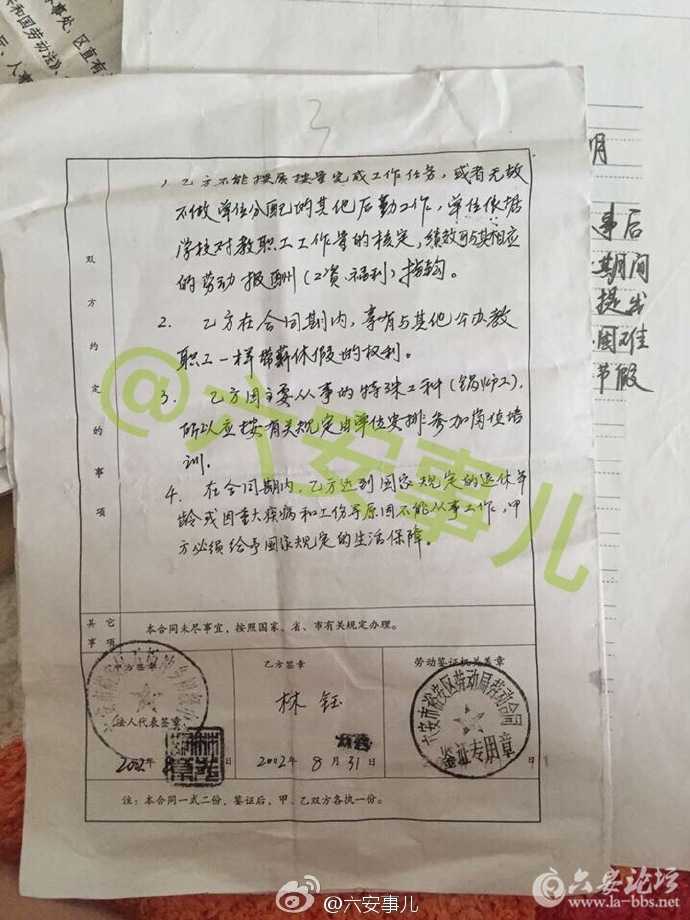 3
双方约定的事项
1、乙方不能按质按量完成工作任务，或者无故
不做单位分配的其他后勤工作，单位依据
学校对教职工工作量的核定，绩效可与其相应
的劳动报酬（工资、福利）挂钩。
2. 乙方在合同期内，享有与其他公办教
职工一样带薪休假的权利。
3. 乙方因主要从事的特殊工种（锅炉工），
所以应按有关规定由单位安排参加岗位培
训。
4. 在合同期内，乙方达到国家规定的退休年
龄或因重大疾病和工伤等原因不能从事工作，甲
方必须给予国家规定的生活保障。
其它事项
本合同未尽事宜，按照国家、省、市有关规定办理。
甲方签章
法人代表签章
2002年
日
乙方签章
林钰
2002年8月31日
劳动鉴证机关盖章
六安市裕安区劳动局劳动合同
鉴证专用章
日
注：本合同一式二份，鉴证后，甲、乙双方各执一份。
事处、区直有
和国劳动法》、
月
事后
期间
提出
困难
节假
@六安事儿
@六安事儿
六安论坛
www.la-bbs.net